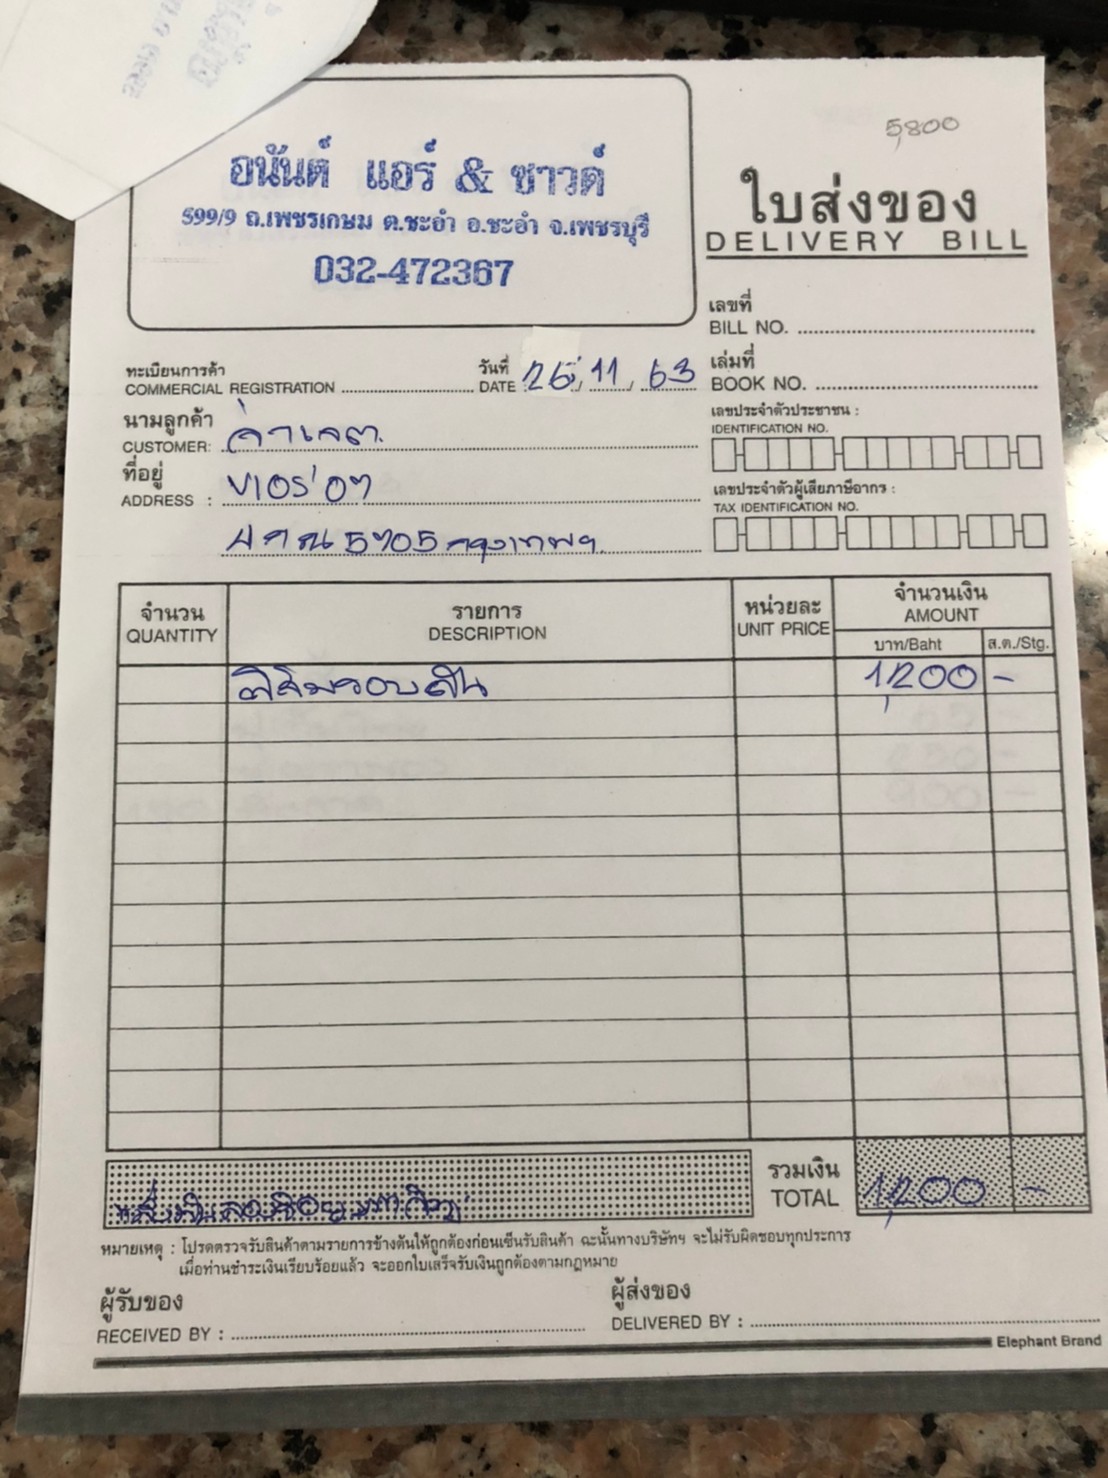 5,800
อนันต์ แอร์ & ซาวด์
599/9 ถ.เพชรเกษม ต.ชะอำ อ.ชะอำ จ.เพชรบุรี
032-472367
ใบส่งของ
DELIVERY BILL
เลขที่
BILL NO.
ทะเบียนการค้า
COMMERCIAL REGISTRATION
วันที่
DATE 26, 11, 63
เล่มที่
BOOK NO.
นามลูกค้า
CUSTOMER:
ที่อยู่
ADDRESS :
5705 กรุงเทพฯ
เลขประจำตัวประชาชน :
IDENTIFICATION NO.
เลขประจำตัวผู้เสียภาษีอากร :
TAX IDENTIFICATION NO.
จำนวน
QUANTITY
รายการ
DESCRIPTION
หน่วยละ
UNIT PRICE
จำนวนเงิน
AMOUNT
บาท/Baht
ส.ต./Stg.
ฟิล์มรอบคัน 1,200 -
รวมเงิน
TOTAL 1,200 -
หมายเหตุ : โปรดตรวจรับสินค้าตามรายการข้างต้นให้ถูกต้องก่อนเซ็นรับสินค้า ฉะนั้นทางบริษัทฯ จะไม่รับผิดชอบทุกประการ
เมื่อท่านชำระเงินเรียบร้อยแล้ว จะออกใบเสร็จรับเงินถูกต้องตามกฎหมาย
ผู้รับของ
RECEIVED BY :
ผู้ส่งของ
DELIVERED BY :
Elephant Brand